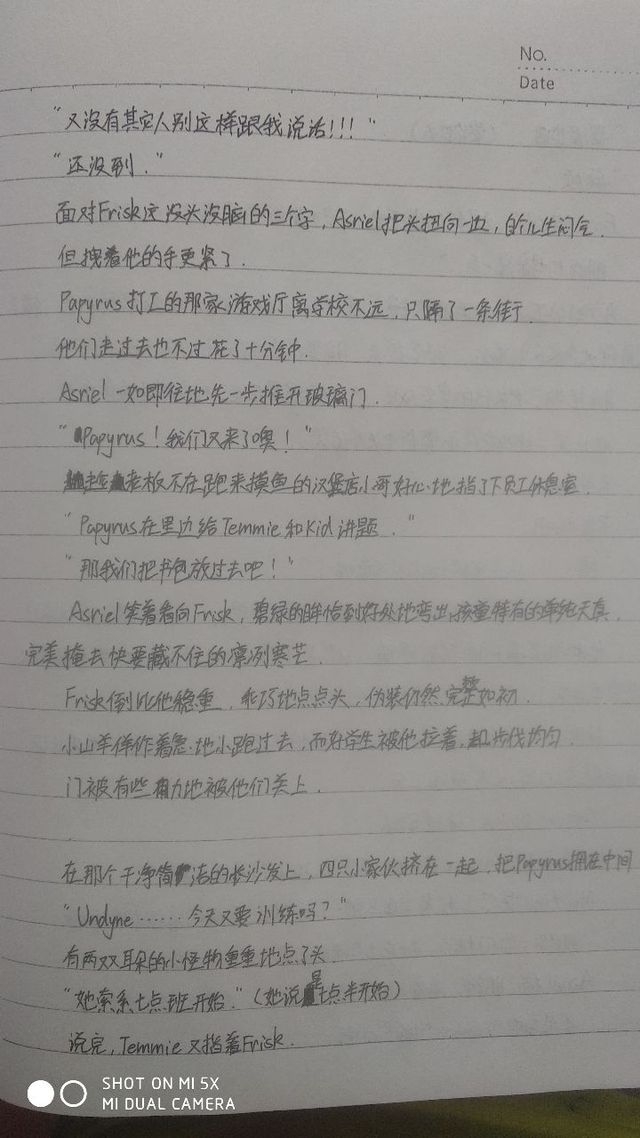 No.
Date
"又没有其它人别这样跟我说话!!!"
"还没到."
面对Frisk这没头没脑的三个字,Asriel把头扭向一边,自个儿生闷气.
但拽着他的手更紧了.
Papyrus打工的那家游戏厅离学校不远,只隔了一条街.
他们走过去也不过花了十分钟.
Asriel一如即往地先一步推开玻璃门.
"Papyrus!我们又来了噢!"
老板不在,跑来摸鱼的汉堡店小哥好心地指了下员工休息室.
"Papyrus在里边给Temmie和Kid讲题."
"那我们把书包放过去吧!"
Asriel笑着看向Frisk,碧绿的眸恰到好处地弯出孩童特有的单纯天真,
完美掩去快要藏不住的凛冽寒芒.
Frisk倒比他稳重,乖巧地点点头,伪装仍然完整如初.
小山羊佯作着急地小跑过去,而好学生被他拉着,步伐均匀.
门被有些用力地被他们关上.
在那个干净简洁的长沙发上,四只小家伙挤在一起,把Papyrus拥在中间
"Undyne……今天又要训练吗?"
有两双耳朵的小怪物重重地点了头
"她索系七点班开始."(她说是七点半开始)
说完,Temmie又指着Frisk.
SHOT ON MI 5X
MI DUAL CAMERA